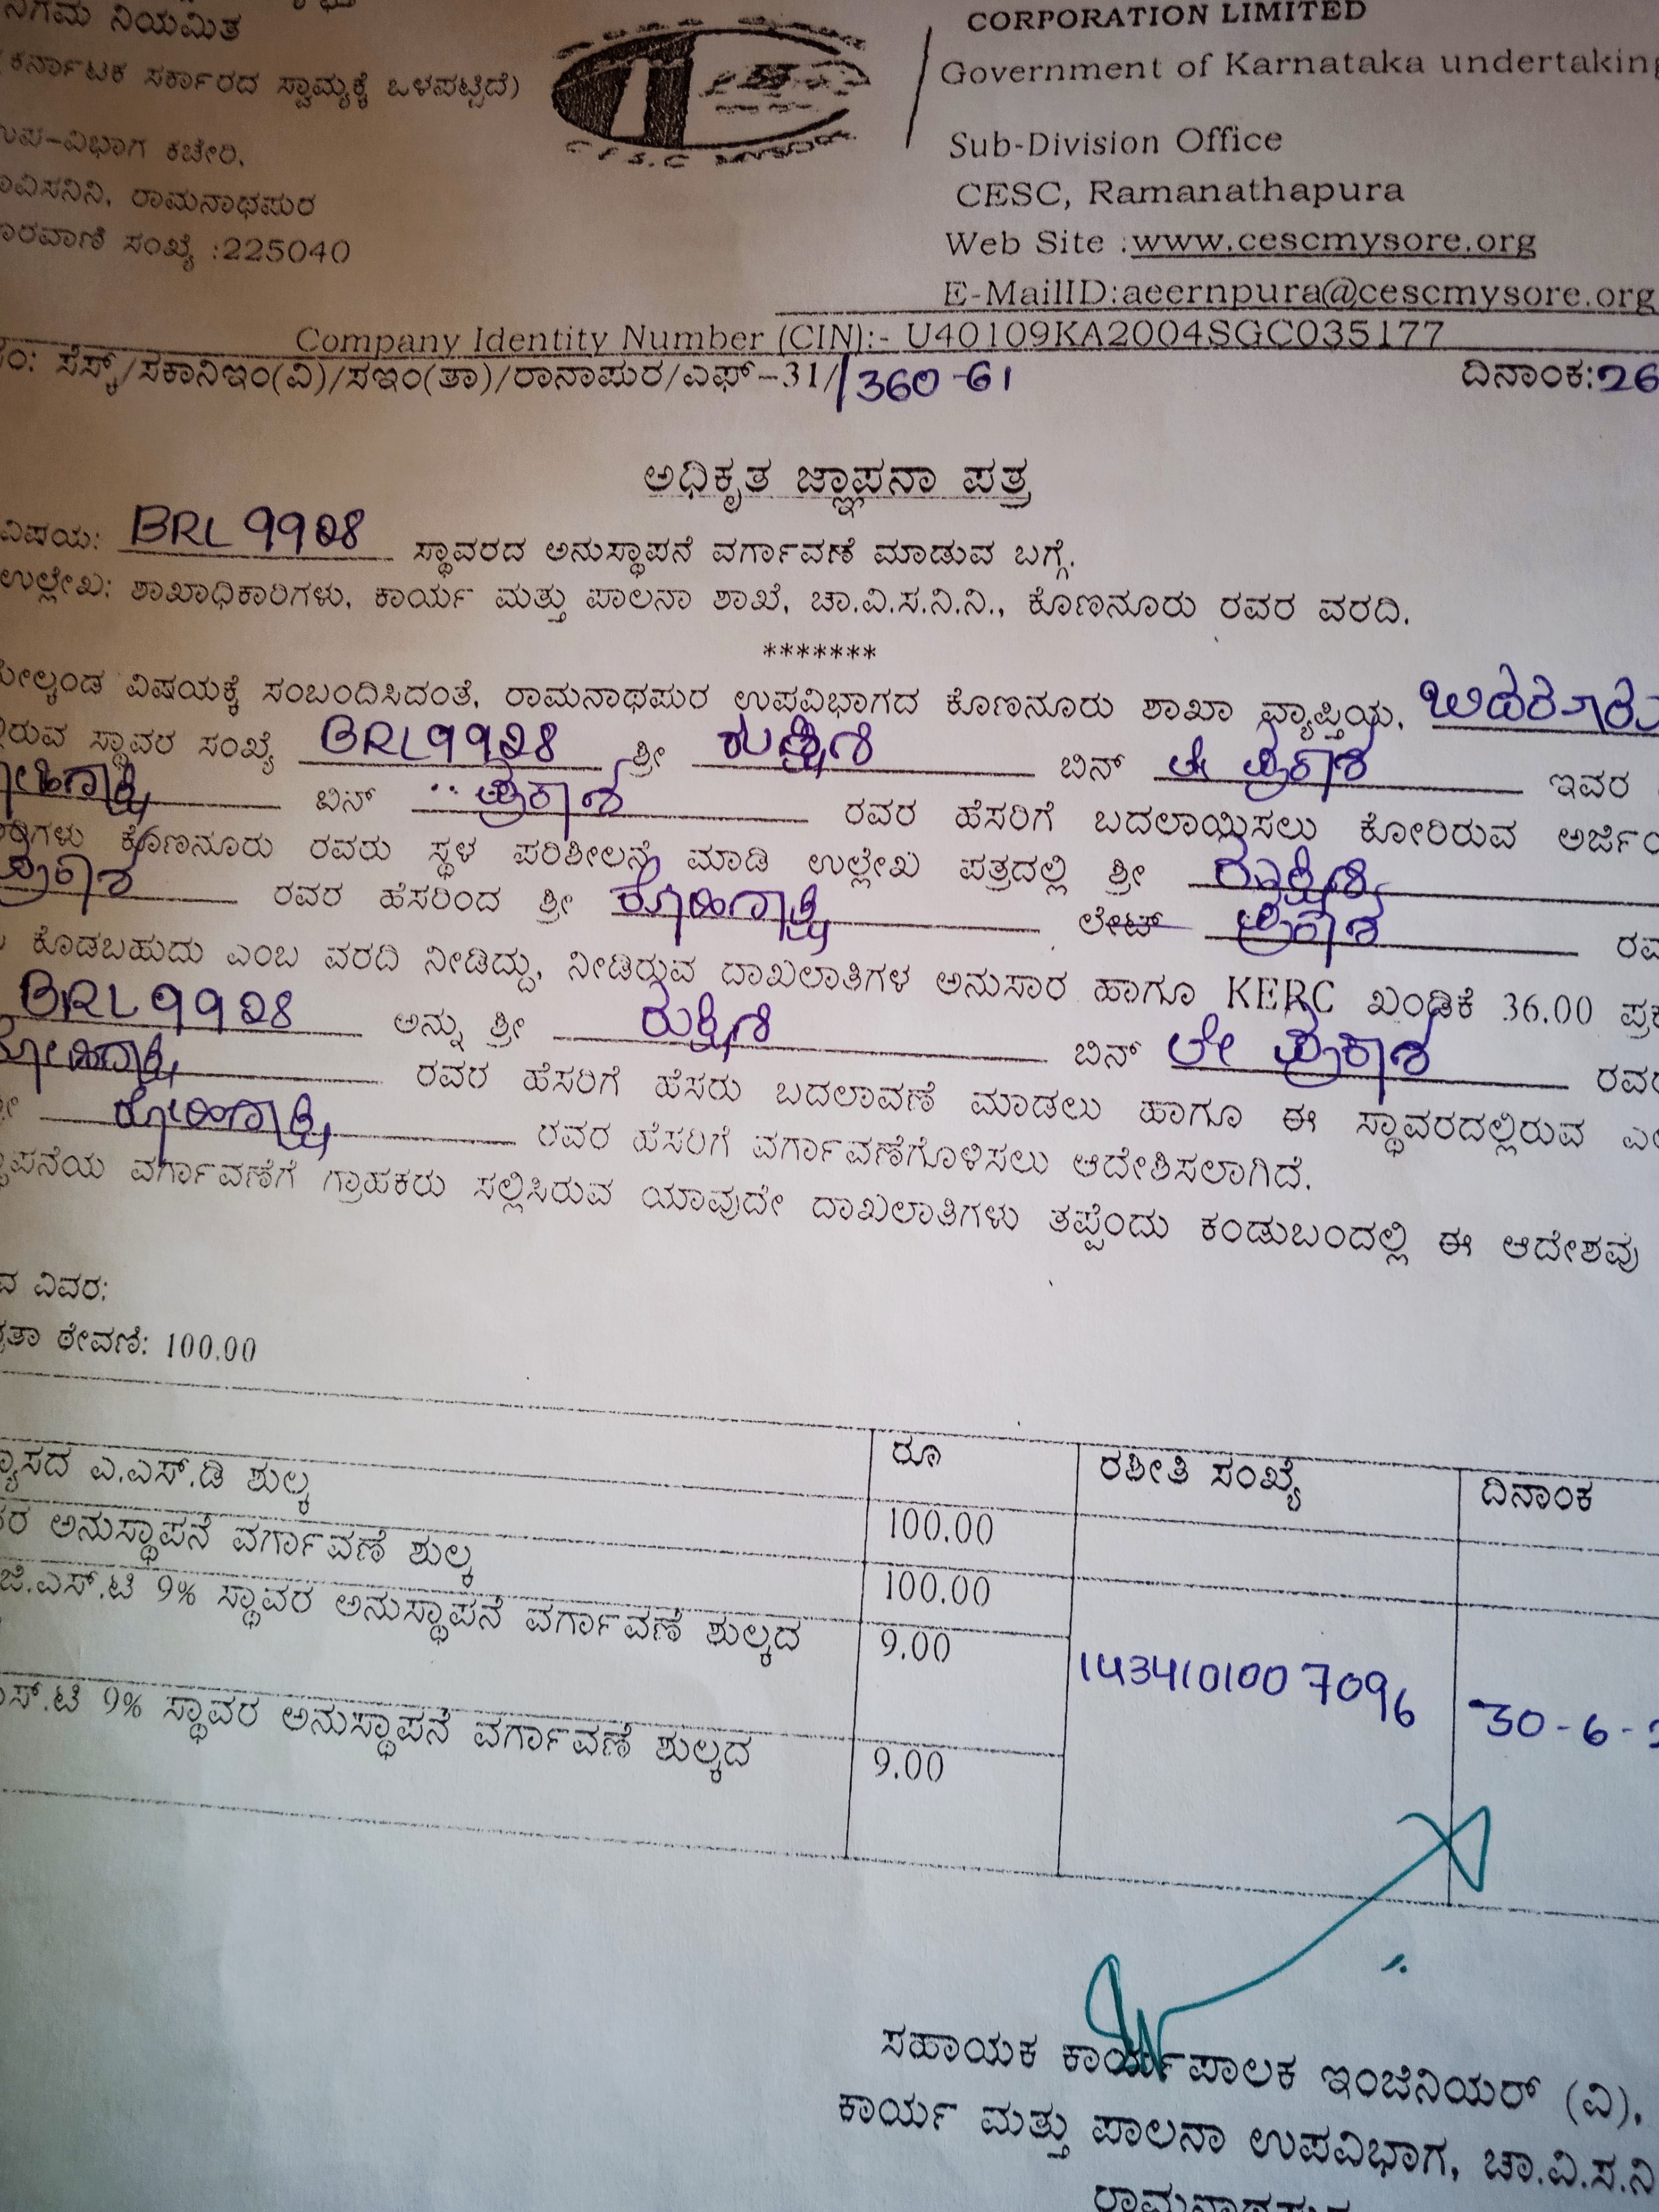 ನಿಗಮ ನಿಯಮಿತ
CORPORATION LIMITED
(ಕರ್ನಾಟಕ ಸರ್ಕಾರದ ಸ್ವಾಮ್ಯಕ್ಕೆ ಒಳಪಟ್ಟಿದೆ)
Government of Karnataka undertaking
ಉಪ-ವಿಭಾಗ ಕಚೇರಿ,
Sub-Division Office
ರಾಮನಾಥಪುರ
CESC, Ramanathapura
ಸಂಖ್ಯೆ :225040
Web Site :www.cescmysore.org
E-MailID:aeernpura@cescmysore.org
Company Identity Number (CIN):- U40109KA2004SGC035177
ಸೆಸ್ಕ್/ಸಕಾನಿಇಂ(ವಿ)/ಸಇಂ(ತಾ)/ರಾನಾಪುರ/ಎಫ್-31/ 360-61 ದಿನಾಂಕ:26
ಅಧಿಕೃತ ಜ್ಞಾಪನಾ ಪತ್ರ
ವಿಷಯ: BRL 9928 ಸ್ಥಾವರದ ಅನುಸ್ಥಾಪನೆ ವರ್ಗಾವಣೆ ಮಾಡುವ ಬಗ್ಗೆ.
ಉಲ್ಲೇಖ: ಶಾಖಾಧಿಕಾರಿಗಳು, ಕಾರ್ಯ ಮತ್ತು ಪಾಲನಾ ಶಾಖೆ, ಚಾ.ವಿ.ಸ.ನಿ.ನಿ., ಕೊಣನೂರು ರವರ ವರದಿ.
*******
ವಿಷಯಕ್ಕೆ ಸಂಬಂದಿಸಿದಂತೆ, ರಾಮನಾಥಪುರ ಉಪವಿಭಾಗದ ಕೊಣನೂರು ಶಾಖಾ ವ್ಯಾಪ್ತಿಯ,
ಸ್ಥಾವರ ಸಂಖ್ಯೆ BRL9928 ಶ್ರೀ ರುಕ್ಮಿಣಿ ಬಿನ್ ಲೇ ಪ್ರಕಾಶ ಇವರ
ಬಿನ್ ಪ್ರಕಾಶ ರವರ ಹೆಸರಿಗೆ ಬದಲಾಯಿಸಲು ಕೋರಿರುವ
ಕೊಣನೂರು ರವರು ಸ್ಥಳ ಪರಿಶೀಲನೆ ಮಾಡಿ ಉಲ್ಲೇಖ ಪತ್ರದಲ್ಲಿ ಶ್ರೀ ರುಕ್ಮಿಣಿ
ಪ್ರಕಾಶ ರವರ ಹೆಸರಿಂದ ಶ್ರೀ ರೋಹಿಣಾಕ್ಷಿ ಲೇಟ್ ಪ್ರಕಾಶ
ಕೊಡಬಹುದು ಎಂಬ ವರದಿ ನೀಡಿದ್ದು, ನೀಡಿರುವ ದಾಖಲಾತಿಗಳ ಅನುಸಾರ ಹಾಗೂ KERC ಖಂಡಿಕೆ 36.00
BRL9928 ಅನ್ನು ಶ್ರೀ ರುಕ್ಮಿಣಿ ಬಿನ್ ಲೇ ಪ್ರಕಾಶ
ರೋಹಿಣಾಕ್ಷಿ ರವರ ಹೆಸರಿಗೆ ಹೆಸರು ಬದಲಾವಣೆ ಮಾಡಲು ಹಾಗೂ ಈ ಸ್ಥಾವರದಲ್ಲಿರುವ
ರೋಹಿಣಾಕ್ಷಿ ರವರ ಹೆಸರಿಗೆ ವರ್ಗಾವಣೆಗೊಳಿಸಲು ಆದೇಶಿಸಲಾಗಿದೆ.
ವರ್ಗಾವಣೆಗೆ ಗ್ರಾಹಕರು ಸಲ್ಲಿಸಿರುವ ಯಾವುದೇ ದಾಖಲಾತಿಗಳು ತಪ್ಪೆಂದು ಕಂಡುಬಂದಲ್ಲಿ ಈ ಆದೇಶವು
ವಿವರ:
ಠೇವಣಿ: 100.00
ರೂ ರಶೀತಿ ಸಂಖ್ಯೆ ದಿನಾಂಕ
ಎ.ಎಸ್.ಡಿ ಶುಲ್ಕ 100.00
ಅನುಸ್ಥಾಪನೆ ವರ್ಗಾವಣೆ ಶುಲ್ಕ 100.00
ಜಿ.ಎಸ್.ಟಿ 9% ಸ್ಥಾವರ ಅನುಸ್ಥಾಪನೆ ವರ್ಗಾವಣೆ ಶುಲ್ಕದ 9.00
1434101007096 30-6-
9% ಸ್ಥಾವರ ಅನುಸ್ಥಾಪನೆ ವರ್ಗಾವಣೆ ಶುಲ್ಕದ 9.00
ಸಹಾಯಕ ಕಾರ್ಯಪಾಲಕ ಇಂಜಿನಿಯರ್ (ವಿ),
ಕಾರ್ಯ ಮತ್ತು ಪಾಲನಾ ಉಪವಿಭಾಗ, ಚಾ.ವಿ.ಸ.ನಿ
ರಾಮನಾಥಪುರ